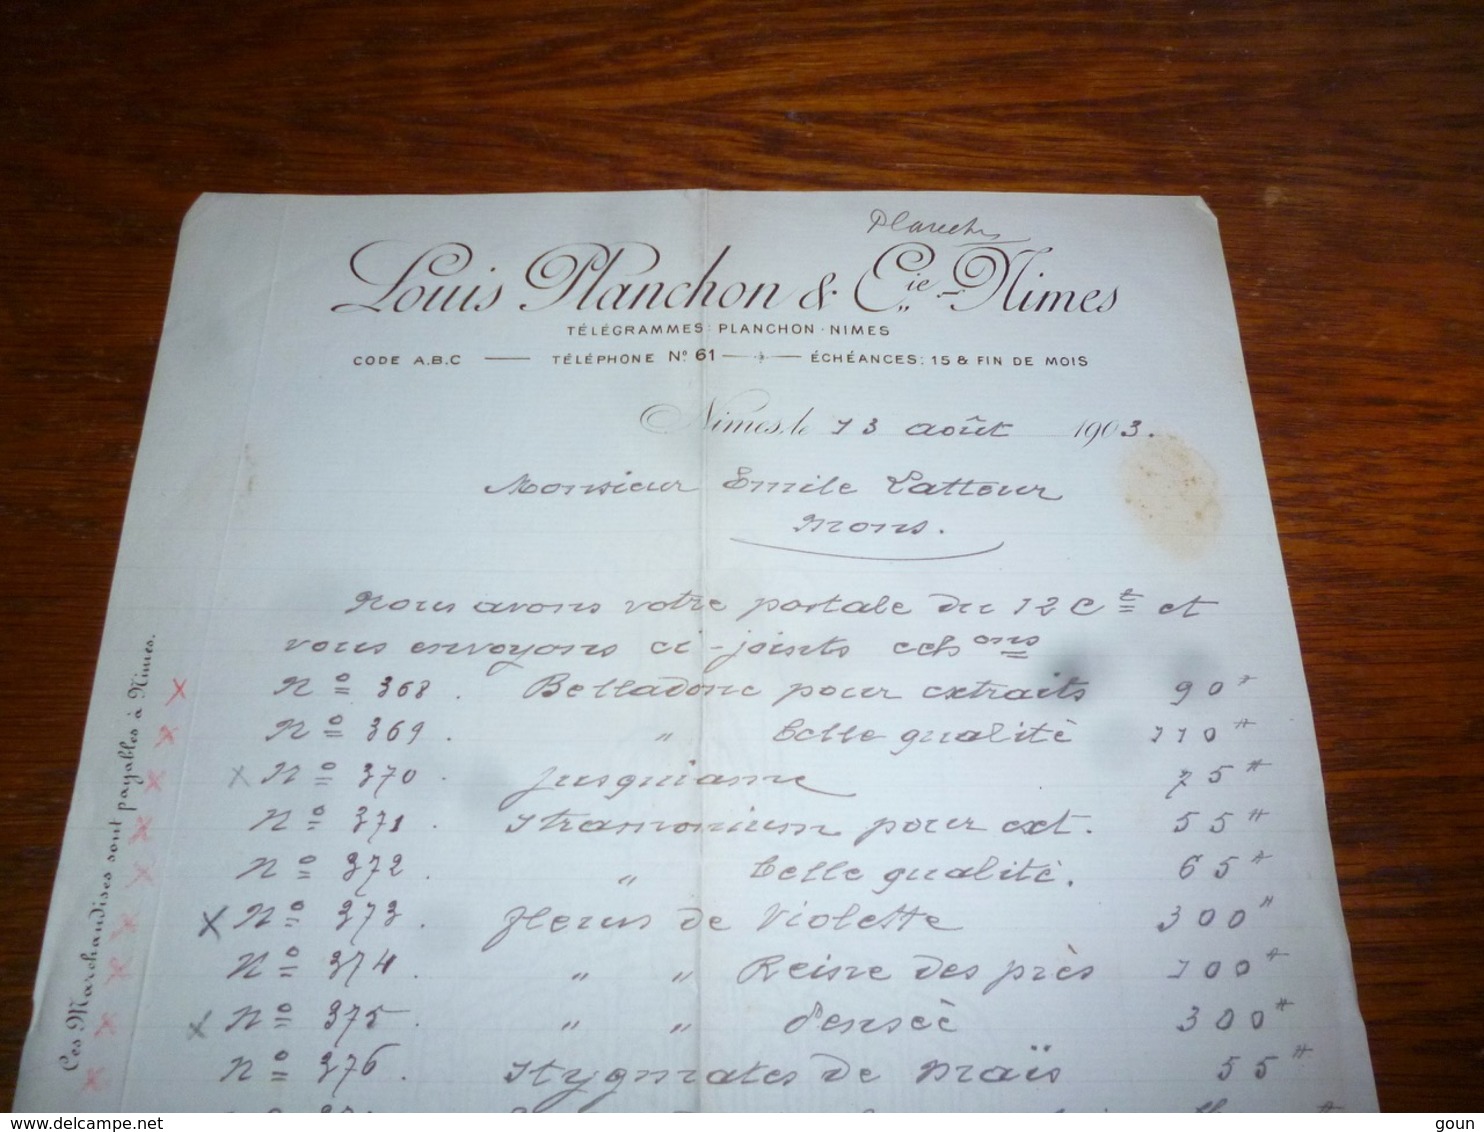 Planchon
Louis Planchon & Cie - Nimes
TÉLÉGRAMMES: PLANCHON-NIMES
CODE A.B.C — TÉLÉPHONE Nº 61 — ÉCHÉANCES: 15 & FIN DE MOIS
Nimes, le 13 août 1903.
Monsieur Emile Lattour
Mons.
Nous avons votre postale du 12 Ct et
vous envoyons ci-joints echons
Nº 368. Belladone pour extraits 90 "
Nº 369. " belle qualité 110 "
x Nº 370. Jusquiame 75 "
Nº 371. Stramonium pour ext. 55 "
Nº 372. " belle qualité. 65 "
x Nº 373. fleurs de Violette 300 "
Nº 374. " " Reine des près 100 "
x Nº 375. " " Pensée 300 "
Nº 376. Stygmates de Maïs 55 "
Ces Marchandises sont payables à Nimes.
delcampe.net
goun